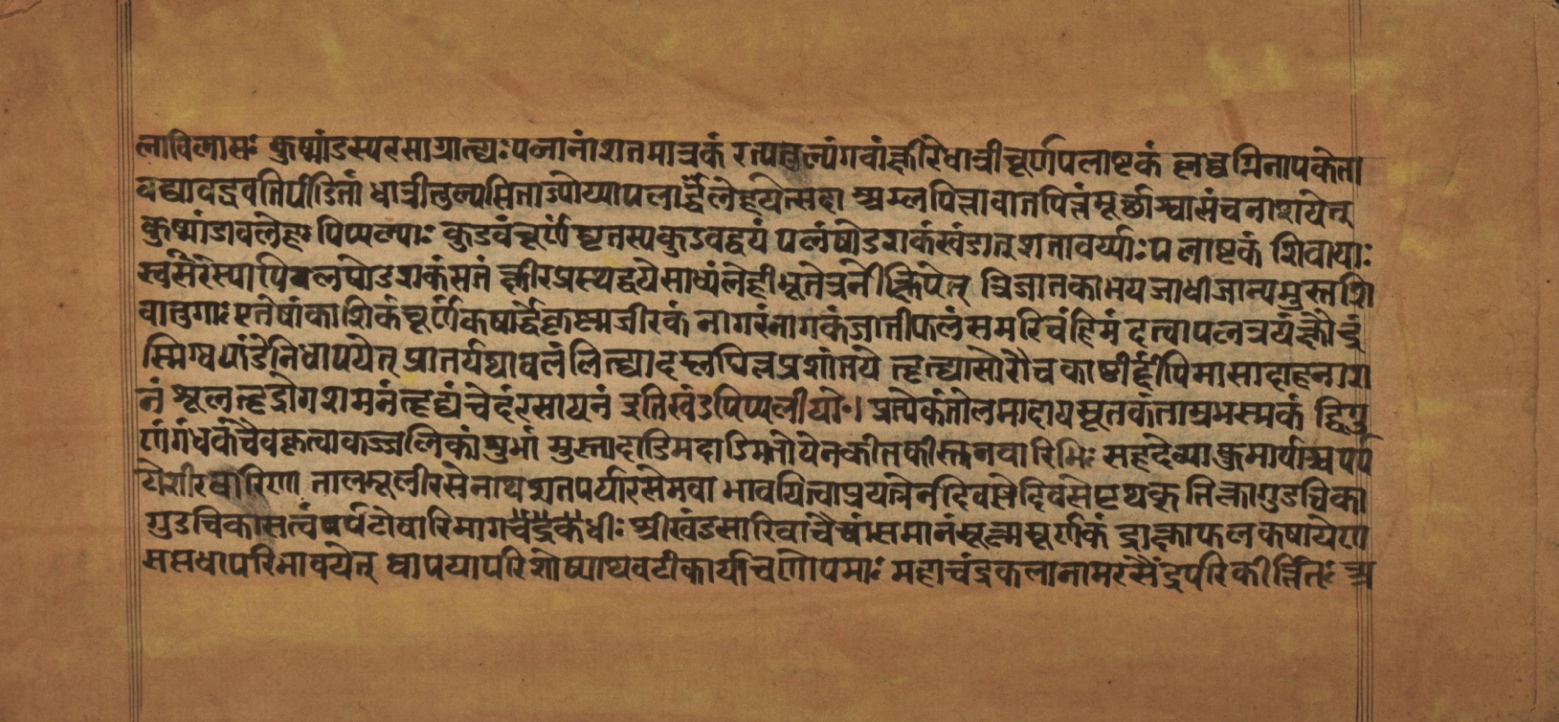 लाविलासः कुष्मांडस्यरसाग्रात्ध्यःपलानांशतमात्रकं रसतुल्यंगवांक्षीरंधात्रीचूर्णपलाष्टकं लघ्वग्निनापचेत्ता
वद्यावद्भवतिपींडितां धात्रीतुल्यासिताज्योय्यापलार्द्धंलेहयेत्सदा अम्लपित्तावातपित्तंमूर्छाश्वासंचनाशयेत्
कुष्मांडावलेहः पिप्पल्याः कुडवंचूर्णंघृतस्यकुडवद्वयं पलंषोडशकंखंडात्शतावर्य्याःपलाष्टकं शिवायाः
स्वरसैरस्यापिपलषोडशकंसतं क्षीरप्रस्थद्वयेसाध्यंलेहीभूतेत्रनिक्षिपेत् त्रिजातकाभयजाधीजान्यमुस्तशि
वातुगाः एतेषांकार्शिकंचूर्णंकषार्द्धंकृष्मजीरकं नागरंनागकंजातीफलंसमरिचंहिमं दत्वापलत्रयंक्षौद्रं
स्निग्धभांडेनिधापयेत् प्रातर्यथाबलंलित्ध्यादम्लपित्तप्रशांतये तृत्ध्यासोरौचकाष्ठीर्दीपिमासादाहनाश
नं शूलत्हृद्रोगशमनंत्हृद्यंचेदंरसायनं इतिखंडपिप्पलीयोः। प्रत्येकंतोलमादायसूतकंताम्रभस्मकं द्विगु
णंगंधकंचैवकृत्वाकज्जलिकांशुभां मुस्तादाडिमदाडिमतोयेनकेतकीस्तनवारिभिः सहदेव्याकुमार्याश्चपर्प
टोशीरवारिणा तालमूलीरसेनाथशतपर्यारसेमवा भावयित्वाप्रयत्नेनदिवसेदिवसेपृथक् तिक्तागुडचिका
गुडचिकासत्वंपर्पटोषारिमागचंद्रकंधीः श्रीखंडसारिवाचैषांसमानंसूक्ष्मचूर्णकं द्राक्षाफलकषायेण
सप्तधापरिभावयेत् धापयापरिशोष्याथवटीकार्याचणोपमाः महाचंद्रकलानामरसेंद्रपरिकीर्त्तितः अ